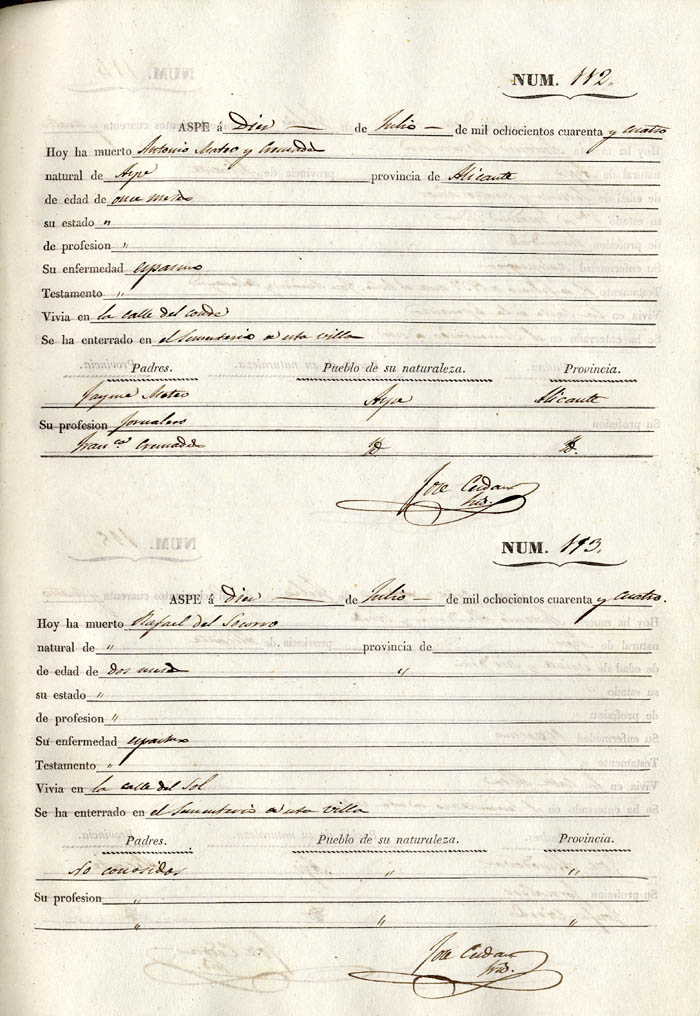 NUM. 112.
ASPE á Diez de Julio de mil ochocientos cuarenta y cuatro
Hoy ha muerto Antonio Mateo y Cremades
natural de Aspe provincia de Alicante
de edad de once meses
su estado "
de profesion "
Su enfermedad espasmo
Testamento "
Vivia en la calle del conde
Se ha enterrado en el Sementerio de esta villa
Padres. Pueblo de su naturaleza. Provincia.
Jayme Mateo Aspe Alicante
Su profesion Jornalero
Fran.ca Cremades Yd. Yd.
Jose
NUM. 113.
ASPE á Diez de Julio de mil ochocientos cuarenta y cuatro.
Hoy ha muerto Rafael del Socorro
natural de " provincia de "
de edad de dos meses
su estado "
de profesion "
Su enfermedad
Testamento "
Vivia en la calle del Sol
Se ha enterrado en el Sementerio de esta villa
Padres. Pueblo de su naturaleza. Provincia.
No conosidos " "
Su profesion "
" " "
Jose